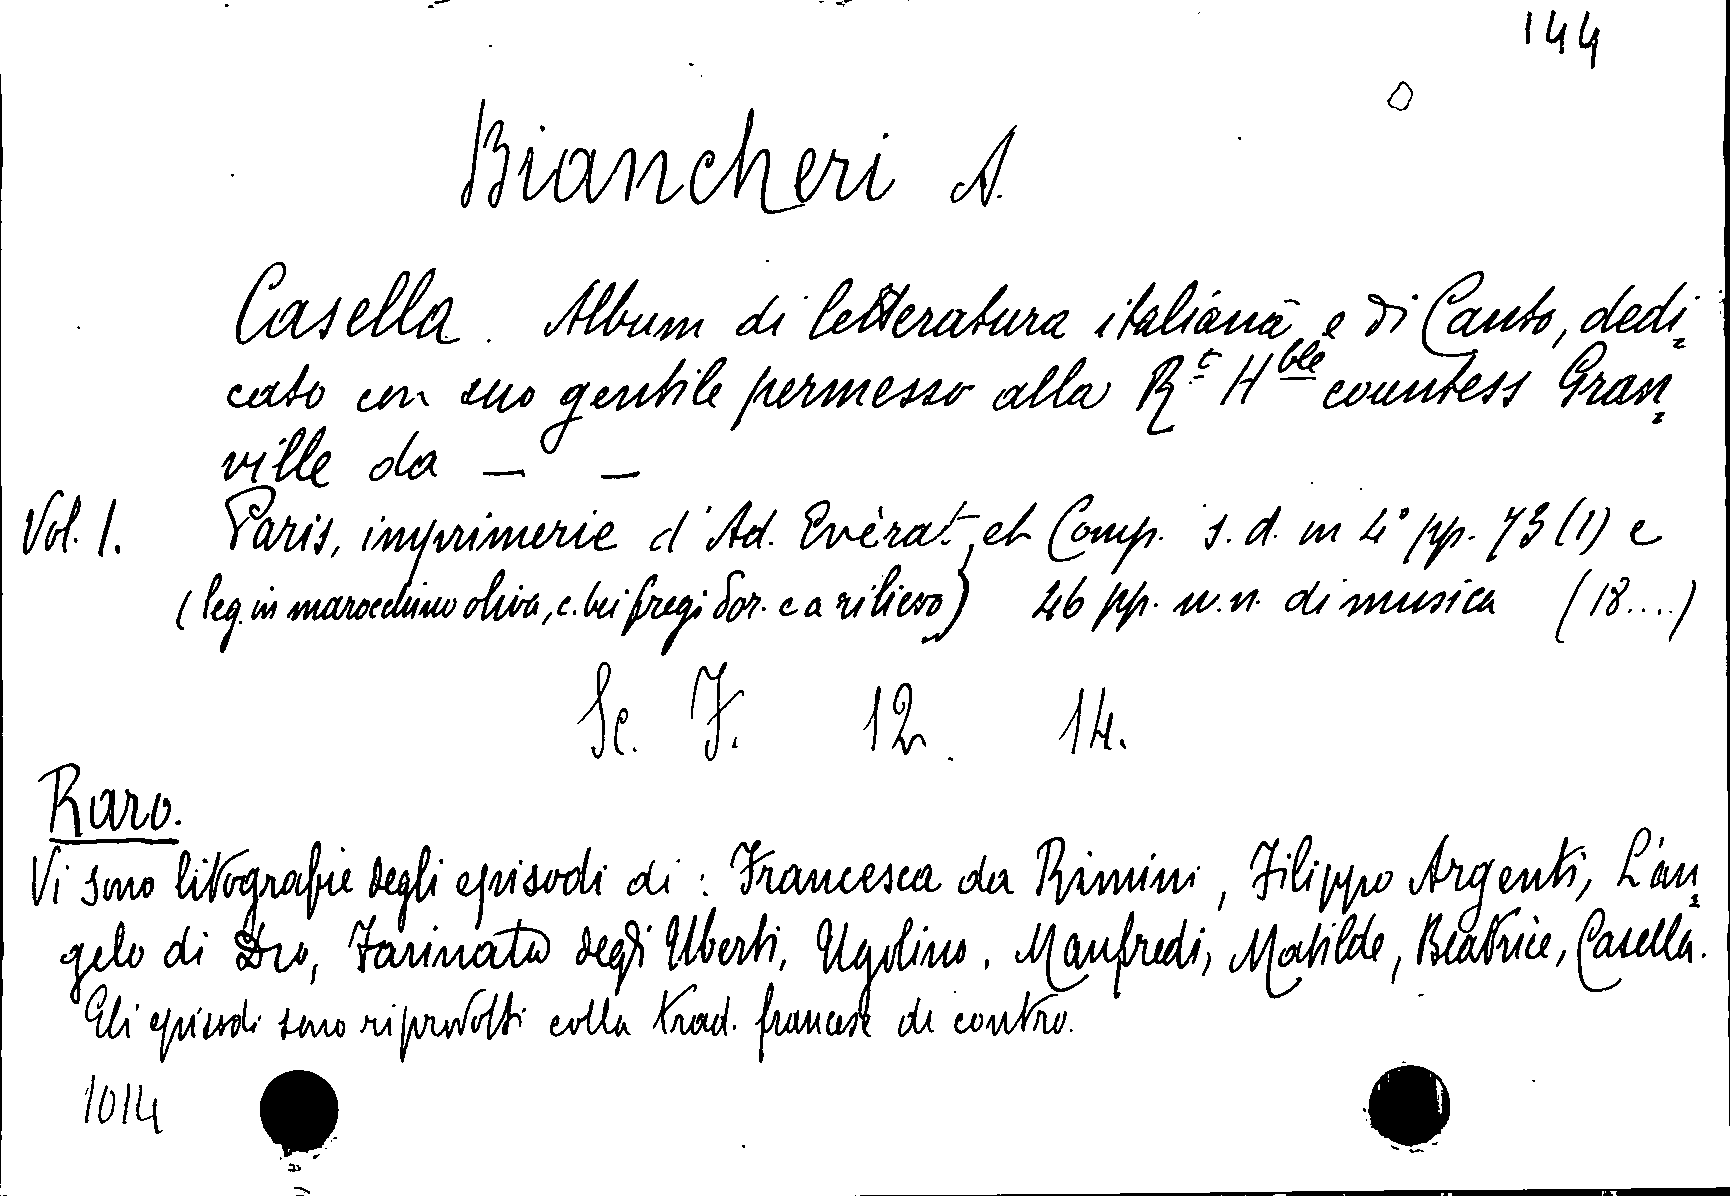 144
Biancheri A.
Casella. Album di letteratura italiana e di Canto, dedi=
cato con suo gentile permesso alla R.e H.ble countess Gran=
ville da — —
Vol. 1. Paris, imprimerie d'Ad. Evèrat et Comp. s. d. in 4° pp. 73 (1) e
(leg. in marocchino oliva, c. bei fregi dor. e a rilievo) 46 pp. n. n. di musica (18....)
Sc. F. 12. 14.
Raro.
Vi sono litografie degli episodi di : Francesca da Rimini, Filippo Argenti, L'an=
gelo di Dio, Farinata degli Uberti, Ugolino, Manfredi, Matilde, Beatrice, Casella.
Gli episodi sono riprodotti colla trad. francese di contro.
1014